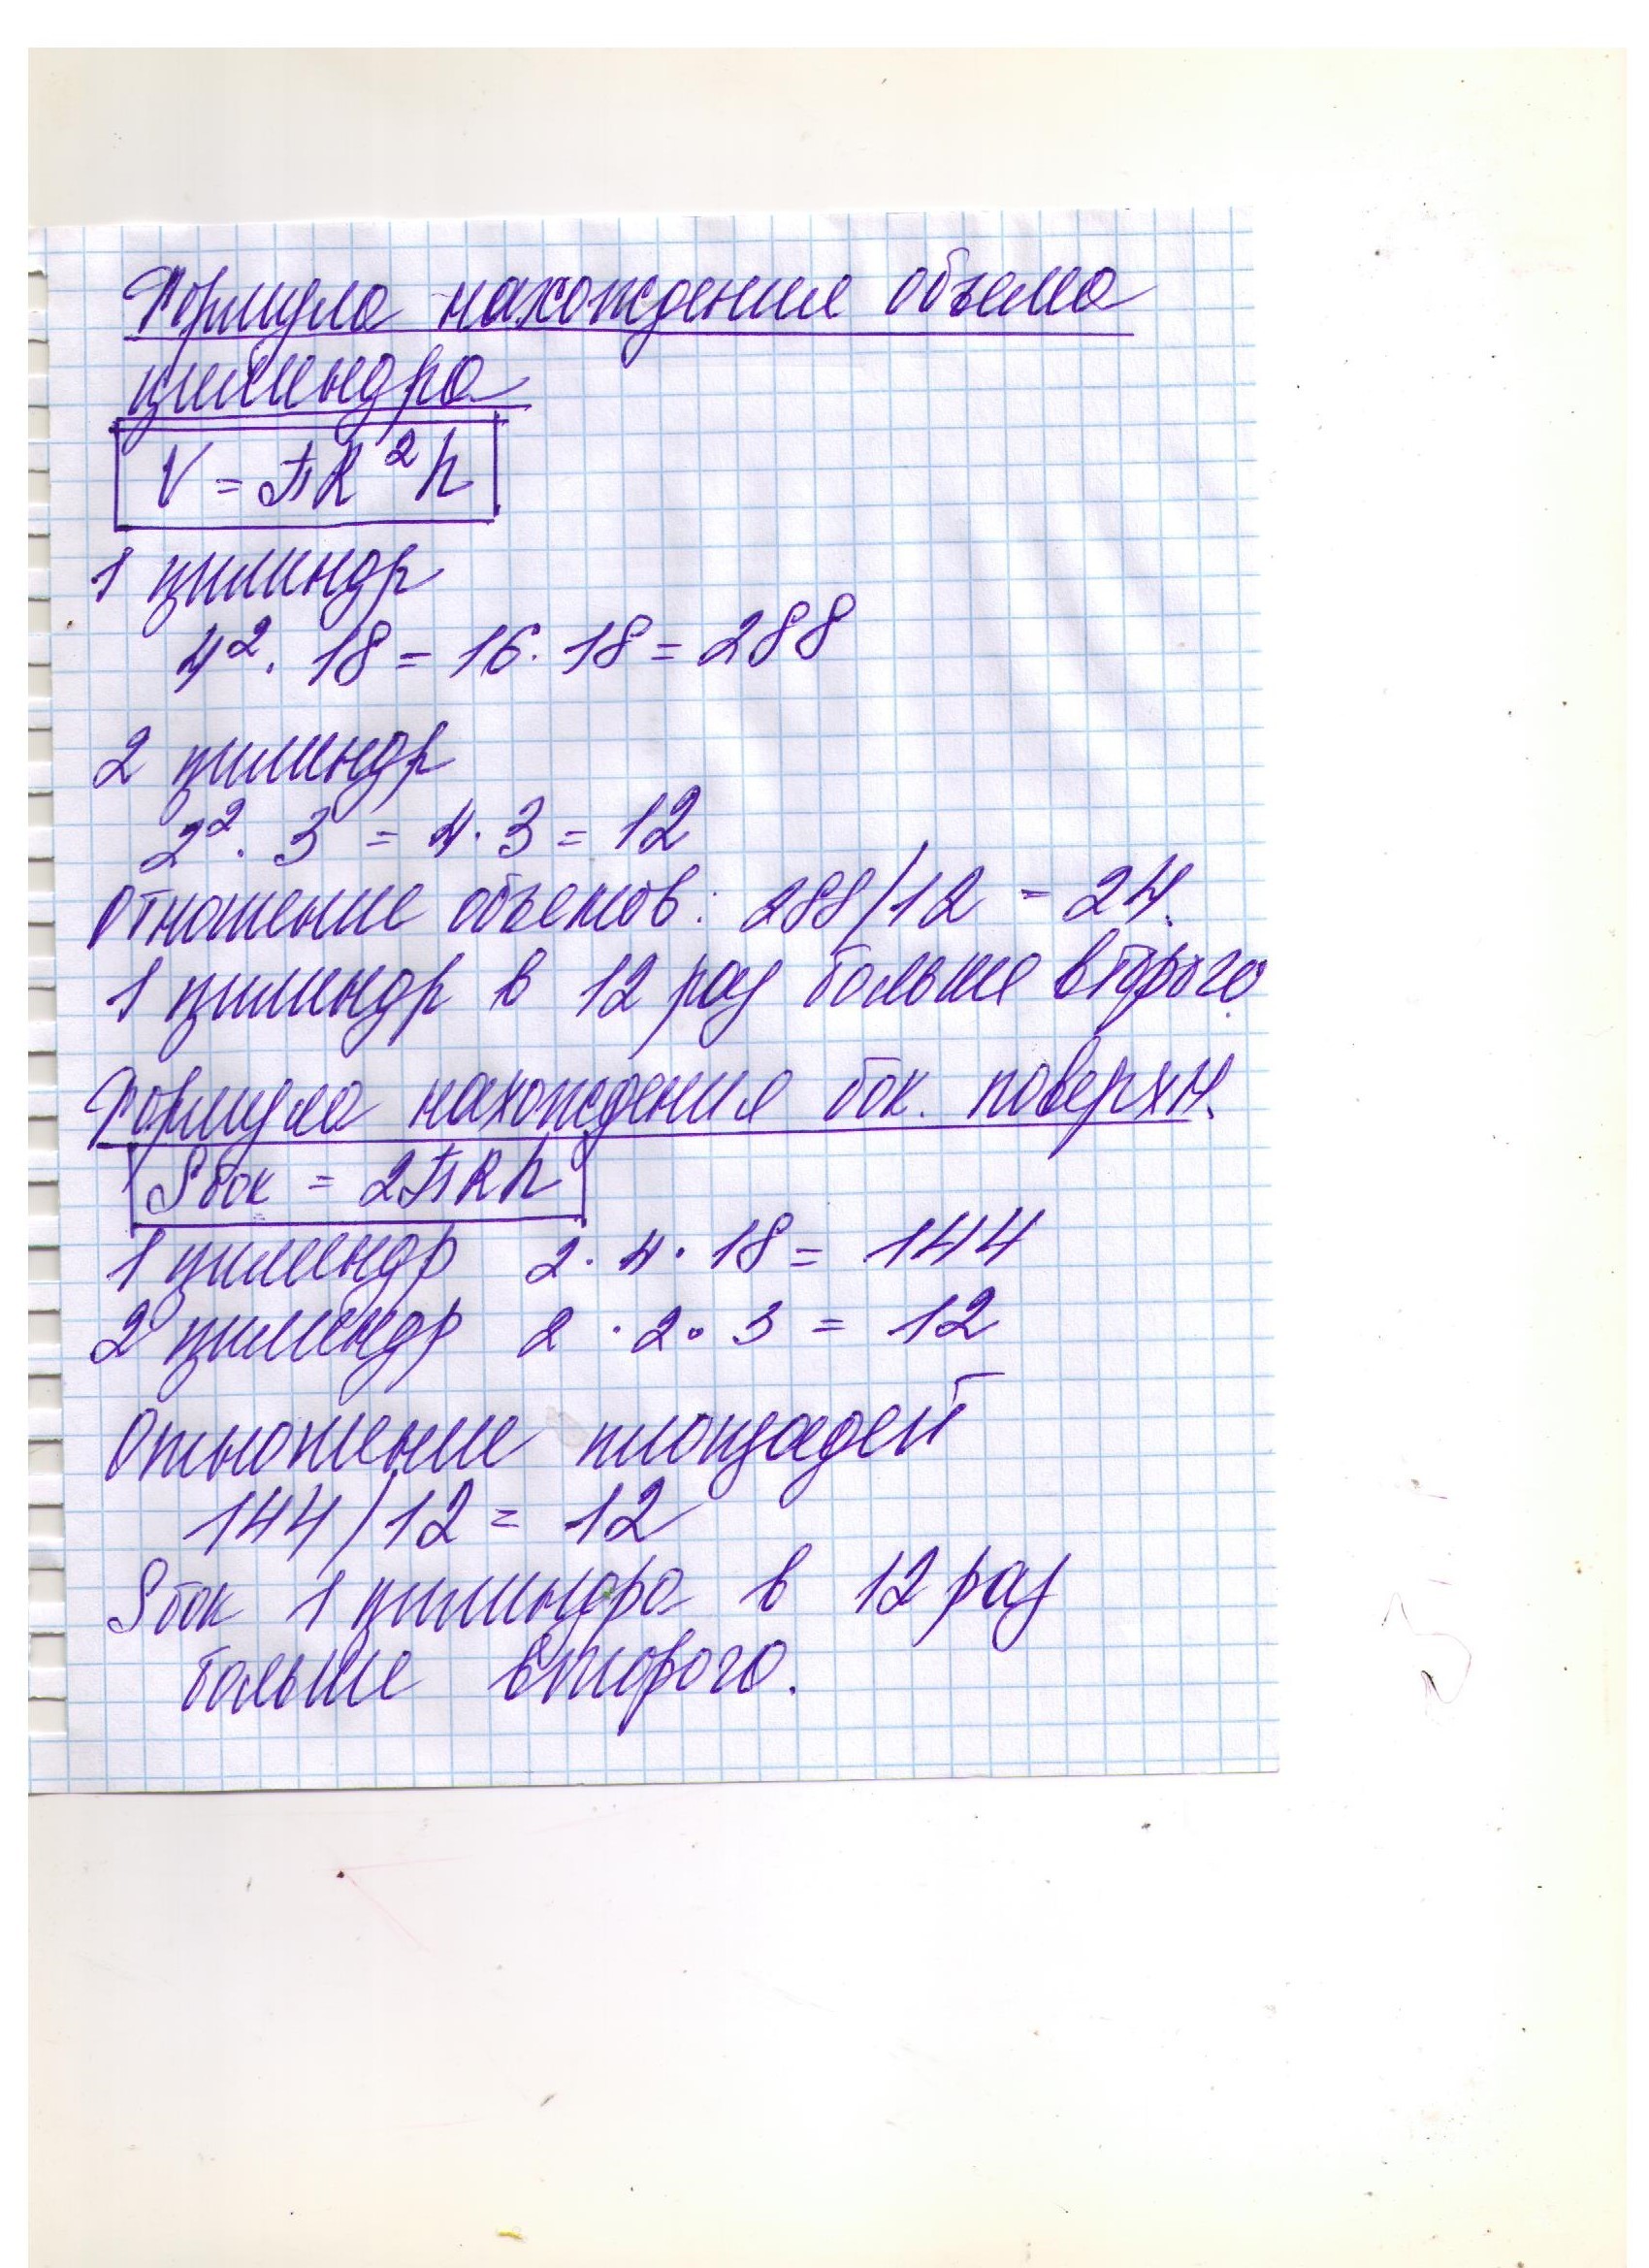 Формула нахождения объема
цилиндра
V = πR²h
1 цилиндр
4² · 18 = 16 · 18 = 288
2 цилиндр
2² · 3 = 4 · 3 = 12
Отношение объемов: 288/12 = 24.
1 цилиндр в 12 раз больше второго.
Формула нахождения бок. поверхн.
Sбок = 2πRh
1 цилиндр 2 · 4 · 18 = 144
2 цилиндр 2 · 2 · 3 = 12
Отношение площадей
144/12 = 12
Sбок 1 цилиндра в 12 раз
больше второго.